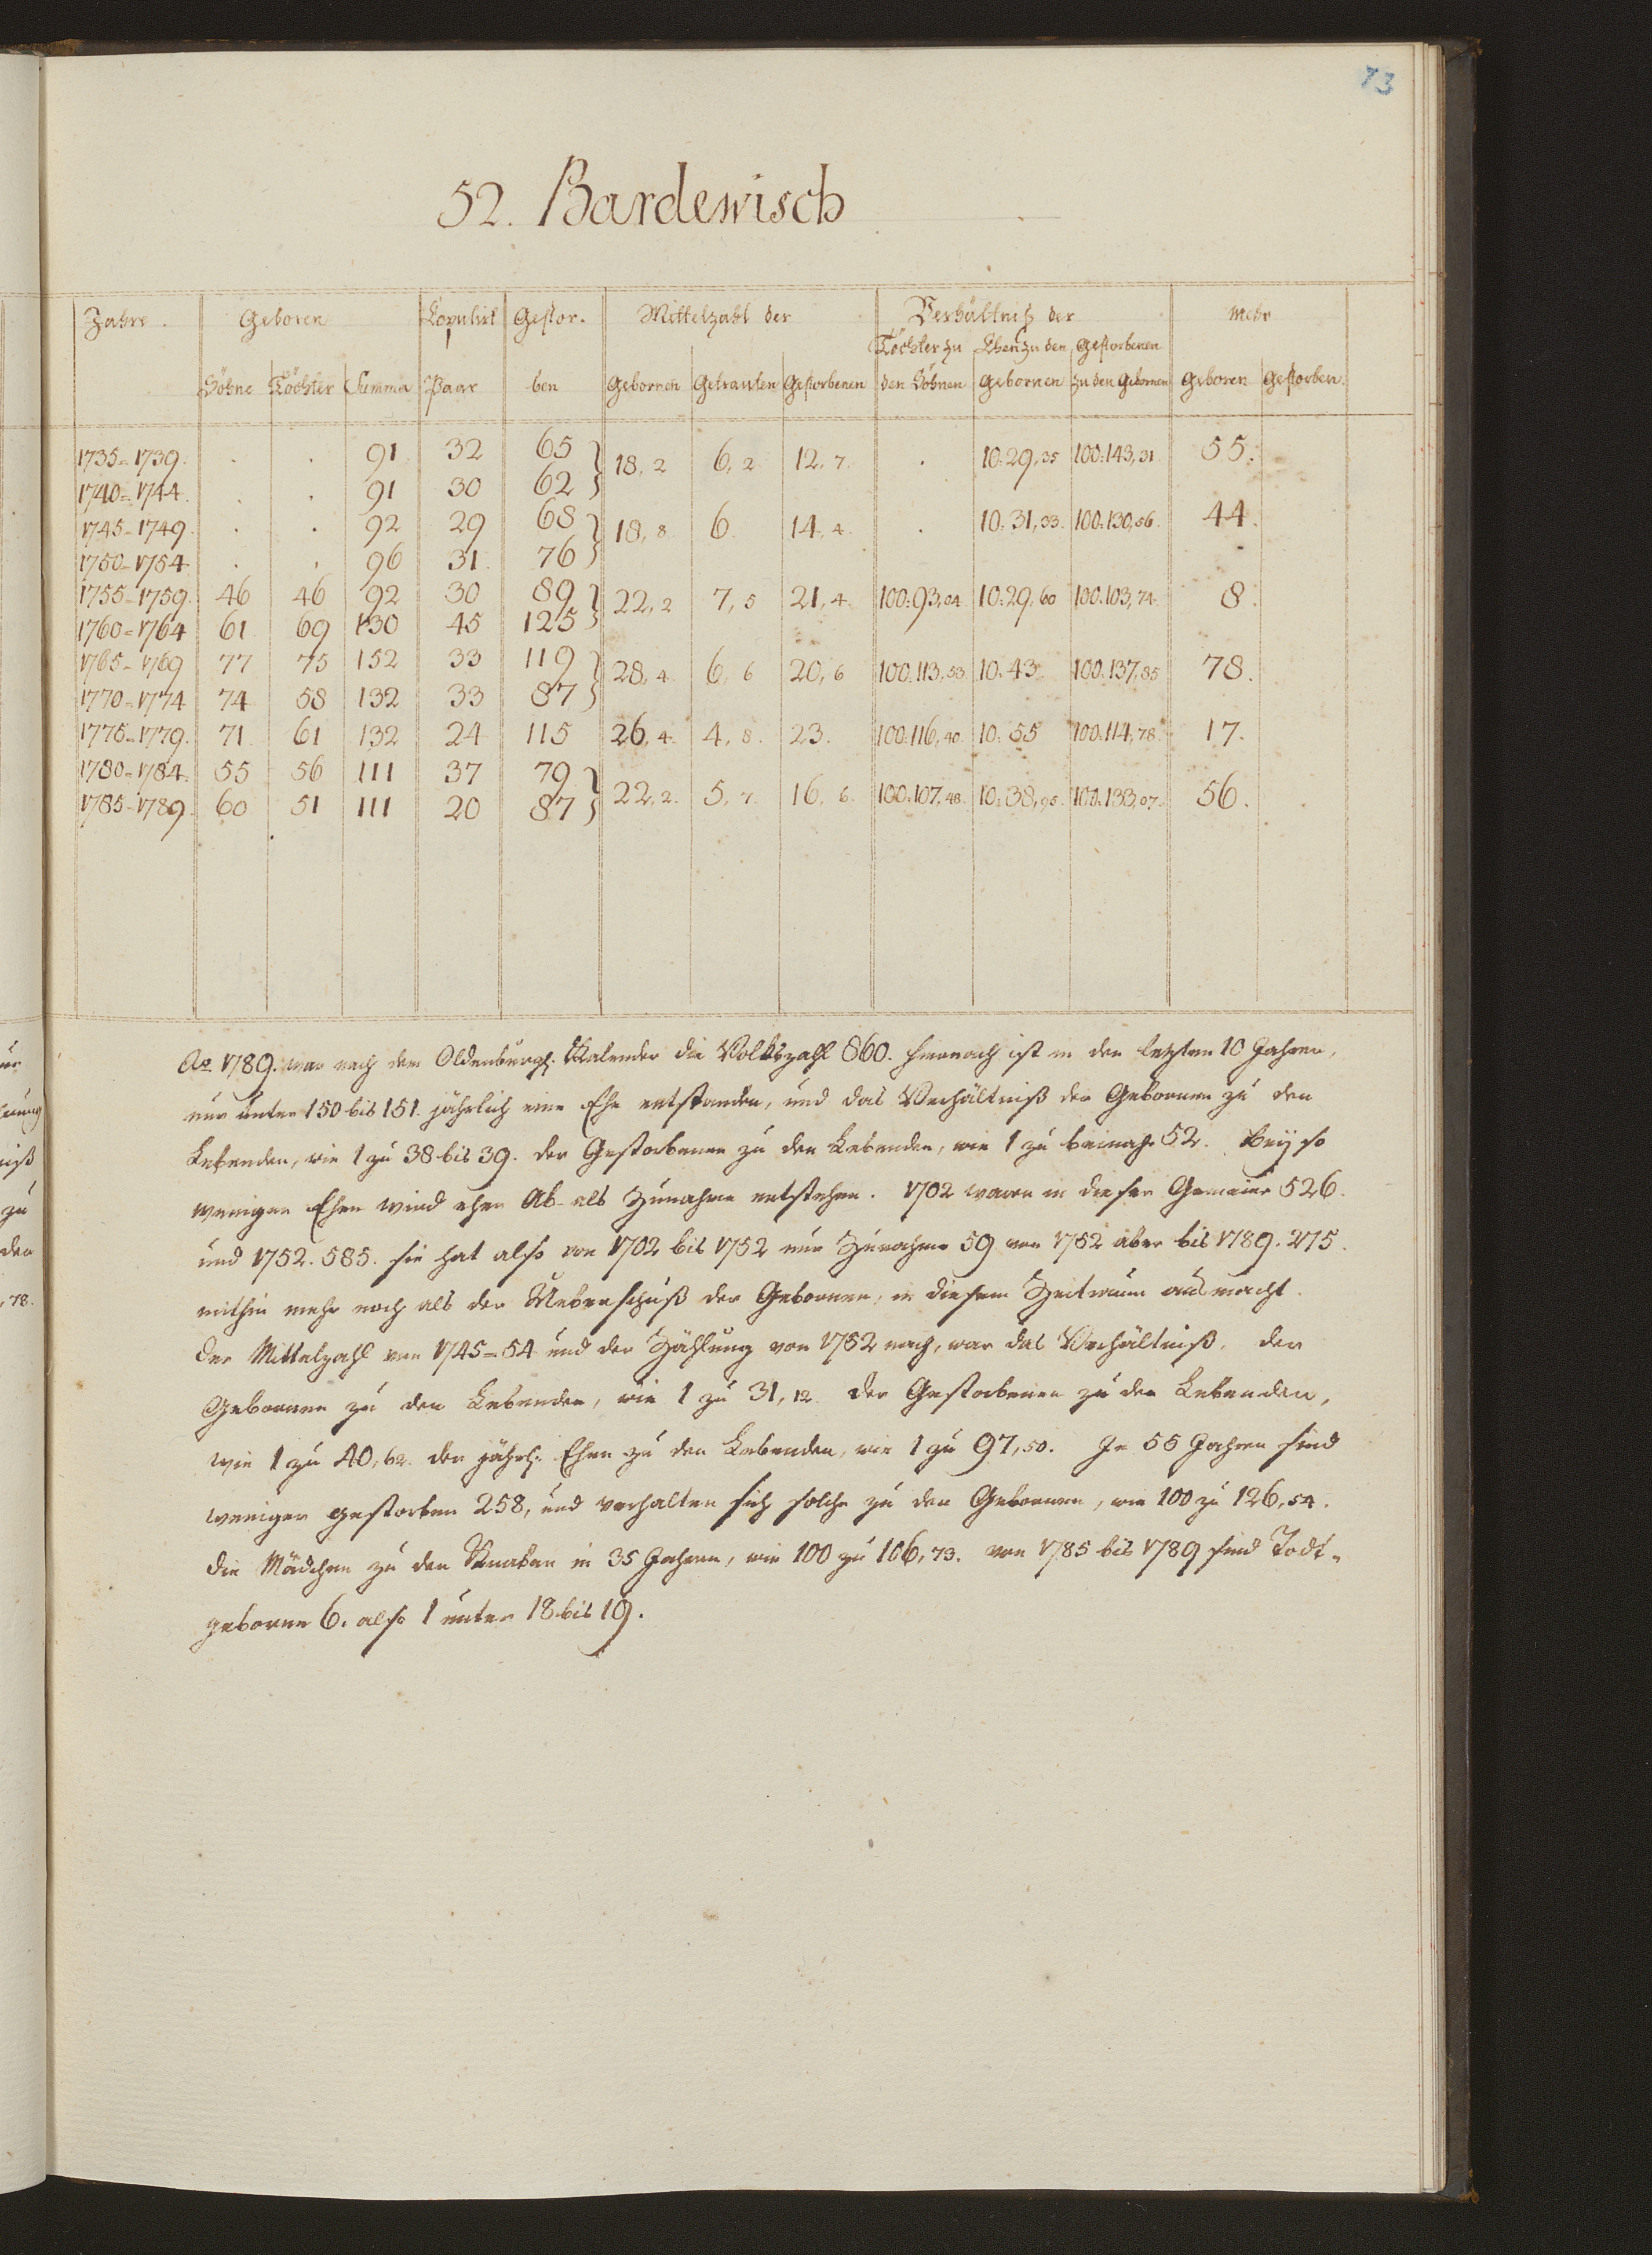 73
52. Bardewisch
Jahre. Geboren Kopulirt Gestor. Mittelzahl der Verhältniß der Mehr
Töchter zu Ehen zu den Gestorbenen
Söhne Töchter Summa Paar ben Gebornen Getrauten Gestorbenen den Söhnen Gebornen zu den Gebornen Geboren Gestorben.
1735=1739. . . 91 32 65 18,2 6,2 12,7. . 10:29,35 100:143,31. 55.
1740=1744. . . 91 30 62
1745=1749. . . 92 29 68 18,8. 6. 14,4. . 10:31,33. 100:130,56. 44.
1750=1754. . . 96 31. 76
1755=1759. 46 46 92 30 89 22,2 7,5 21,4. 100:93,04. 10:29,60 100:103,74. 8.
1760=1764 61 69 130 45 125
1765=1769 77 75 152 33 119 28,4. 6,6 20,6 100:113,53. 10:43. 100:137,85 78.
1770=1774 74 58 132 33 87
1775=1779. 71. 61 132 24 115 26,4. 4,8. 23. 100:116,40. 10:55 100:114,78. 17.
1780=1784. 55 56 111 37 79 22,2. 5,7. 16,6. 100:107,48. 10:38,95. 100:133,07. 56.
1785=1789. 60 51 111 20 87
Ao 1789. war nach dem Oldenburgs. Kalender die Volkszahl 860. hiernach ist in den letzten 10 Jahren,
nur unter 150 bis 151. jährlich eine Ehe entstanden, und das Verhältniß der Gebornen zu den
Lebenden, wie 1 zu 38 bis 39. der Gestorbenen zu den Lebenden, wie 1 zu beinahe 52. Bey so
wenigen Ehen wird eher Ab- als Zunahme entstehen. 1702 waren in dieser Gemeine 526.
und 1752. 585. sie hat also von 1702 bis 1752 nur Zunahme 59 von 1752 aber bis 1789. 275.
mithin mehr noch als der Ueberschuß der Gebornen, in diesem Zeitraum ausmacht.
Der Mittelzahl von 1745=54 und der Zählung von 1752 nach, war das Verhältniß, der
Gebornen zu den Lebenden, wie 1 zu 31,12. der Gestorbenen zu den Lebenden,
wie 1 zu 40,62. der jährl. Ehen zu den Lebenden, wie 1 zu 97,50. In 55 Jahren sind
weniger gestorben 258, und verhalten sich solche zu den Gebornen, wie 100 zu 126,54.
die Mädchen zu den Knaben in 35 Jahren, wie 100 zu 106,73. von 1785 bis 1789 sind Todt-
geborne 6. also 1 unter 18 bis 19.